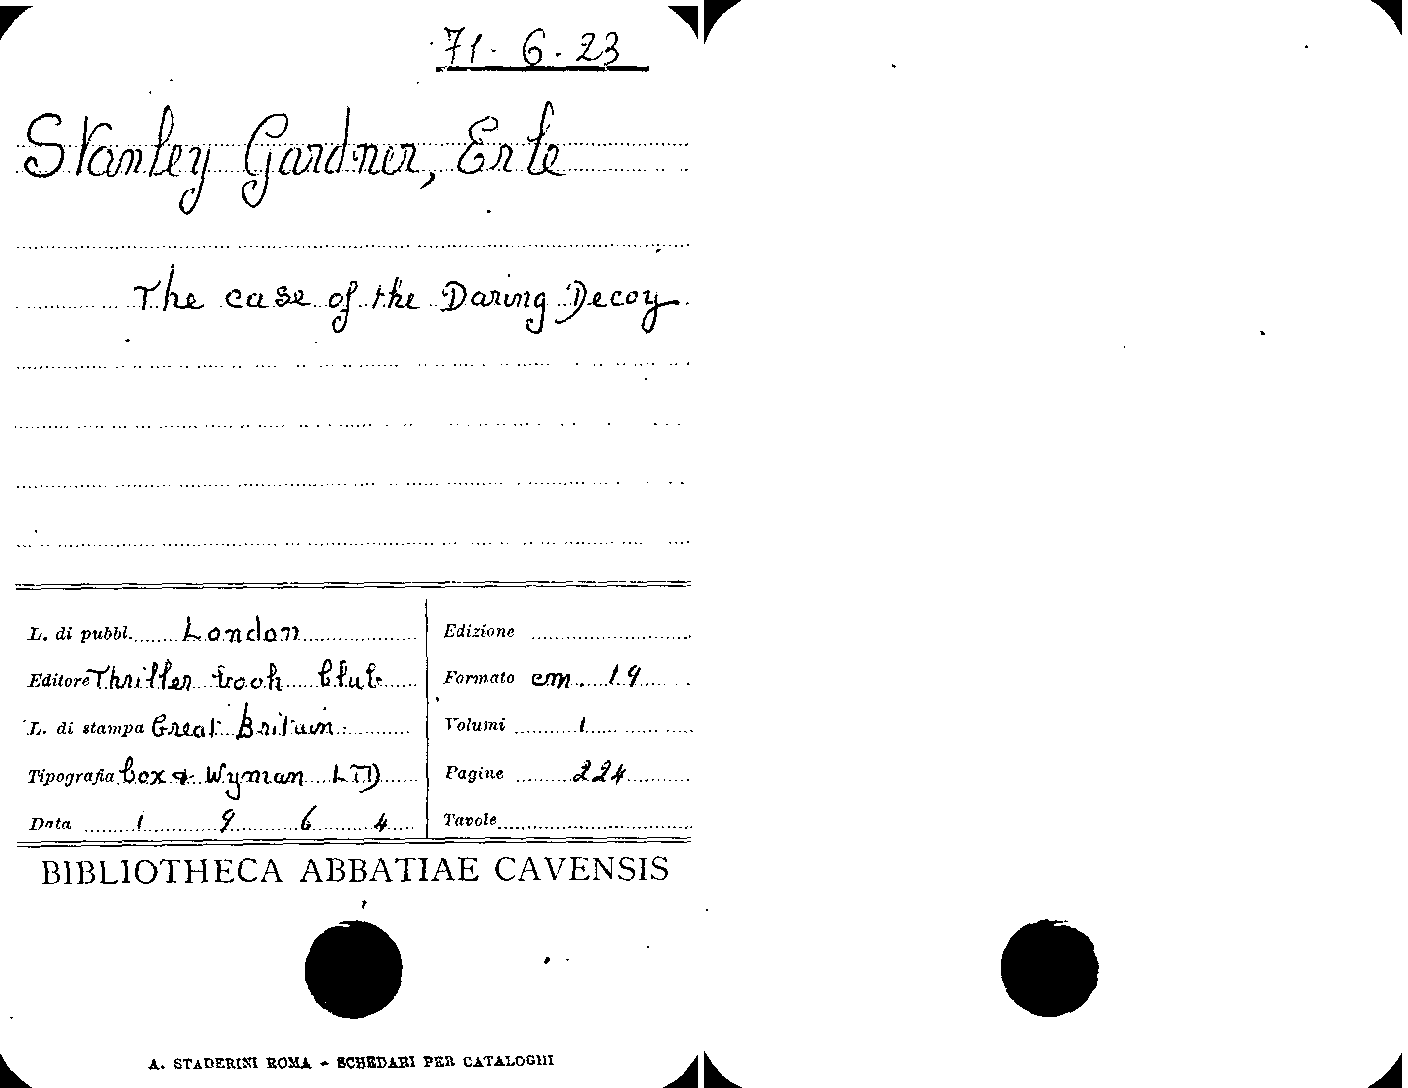 71-6-23
Stanley Gardner, Erle
The case of the Daring Decoy
L. di pubbl. London
Editore Thriller book Club
L. di stampa Great Britain
Tipografia Cox & Wyman LTD
Data 1 9 6 4
Edizione
Formato cm. 19
Volumi 1
Pagine 224
Tavole
BIBLIOTHECA ABBATIAE CAVENSIS
A. STADERINI ROMA - SCHEDARI PER CATALOGHI